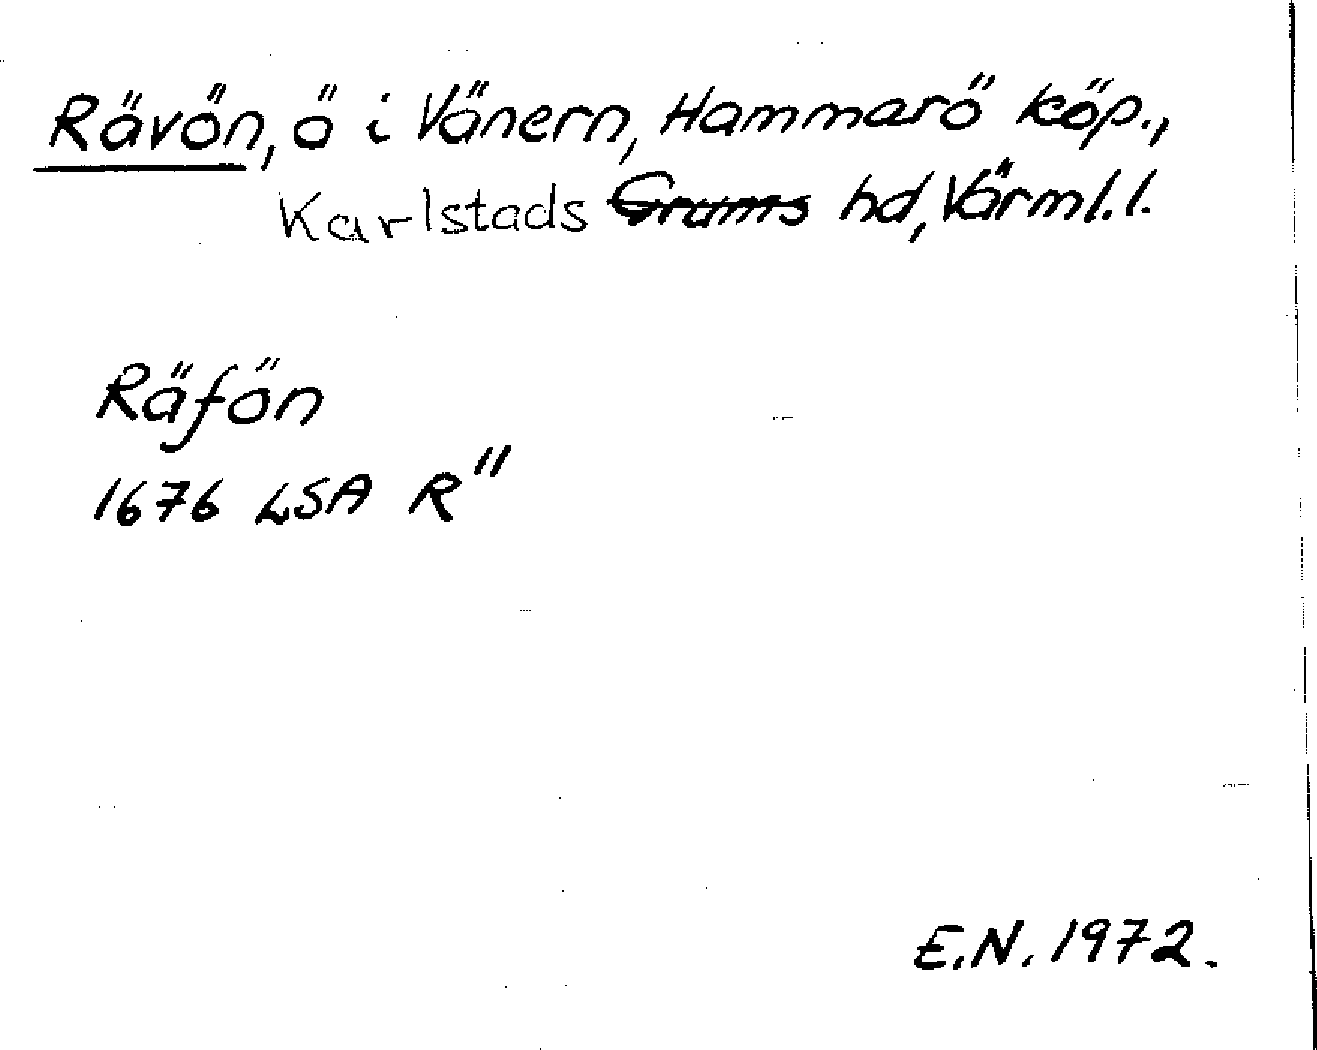 Rävön, ö i Vänern, Hammarö köp.,
Karlstads Grums hd, Värml. l.
Räfön
1676 LSA R"
E.N. 1972.